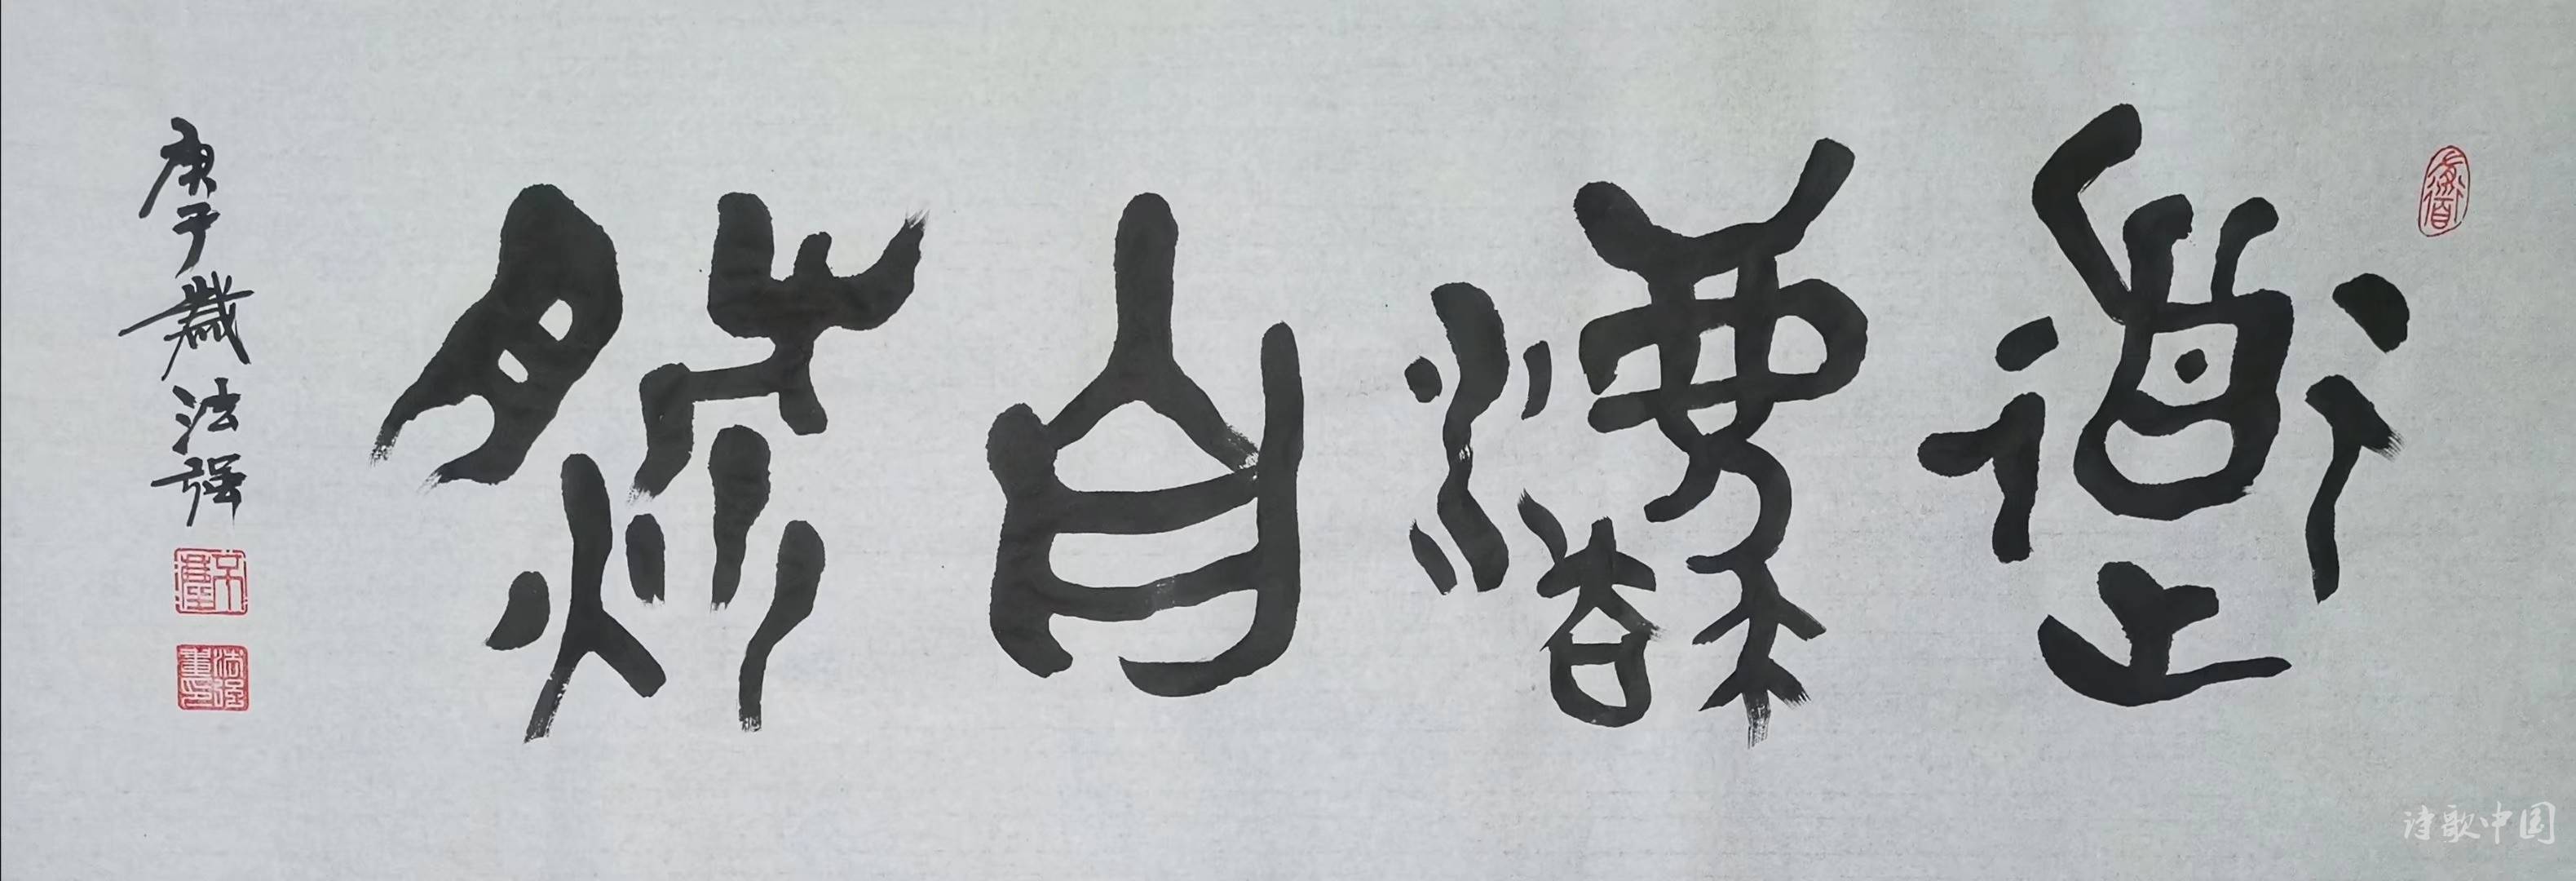 道法自然
庚子岁法强
诗歌中国